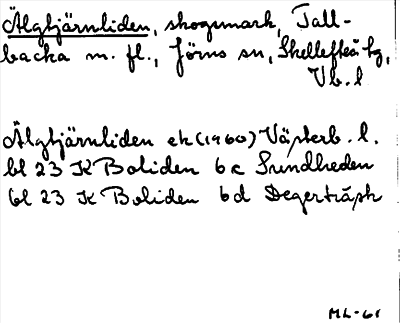 Älgtjärnliden, skogsmark, Tall-
backa m. fl., Jörns sn, Skellefteå tg,
Vb. l.
Älgtjärnliden ek (1960) Västerb. l.
bl 23 K Boliden 6c Sundheden
bl 23 K Boliden 6d Degerträsk
ML-61